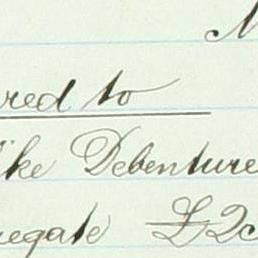 red to
ike Debenture
regate £2